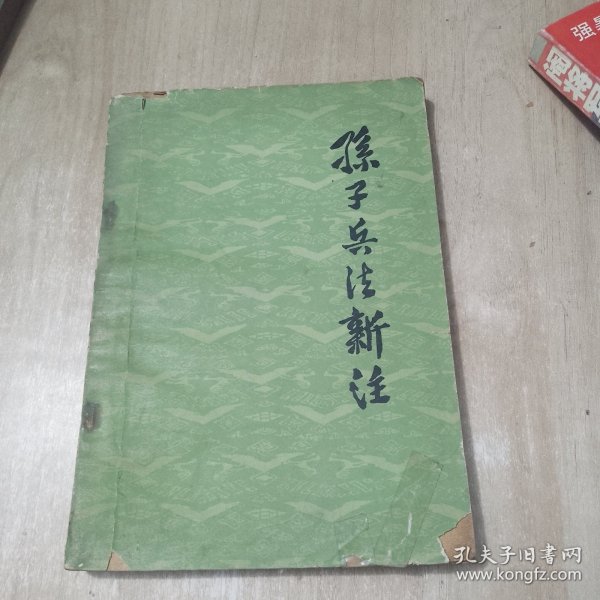 孫子兵法新注
强
孔夫子旧書网
www.kongfz.com